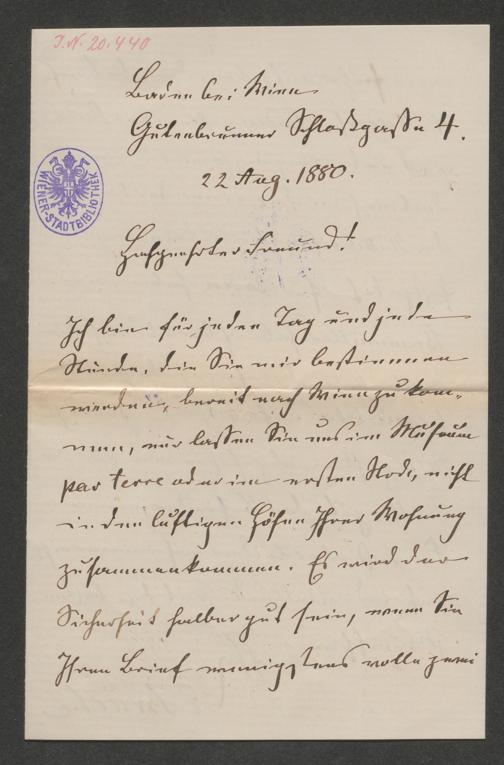 J.N. 20.440
Baden bei Wien
Gutenbrunner Schloßgasse 4.
22 Aug. 1880.
WIENER-STADTBIBLIOTHEK
Hochgeehrter Freund!
Ich bin für jeden Tag und jede
Stunde, die Sie mir bestimmen
werden, bereit nach Wien zu kom-
men, nur lassen Sie uns im Museum
par terre oder im ersten Stock, nicht
in den luftigen Höhen Ihrer Wohnung
zusammenkommen. Es wird der
Sicherheit halber gut sein, wenn Sie
Ihren Brief wenigstens volle zwei